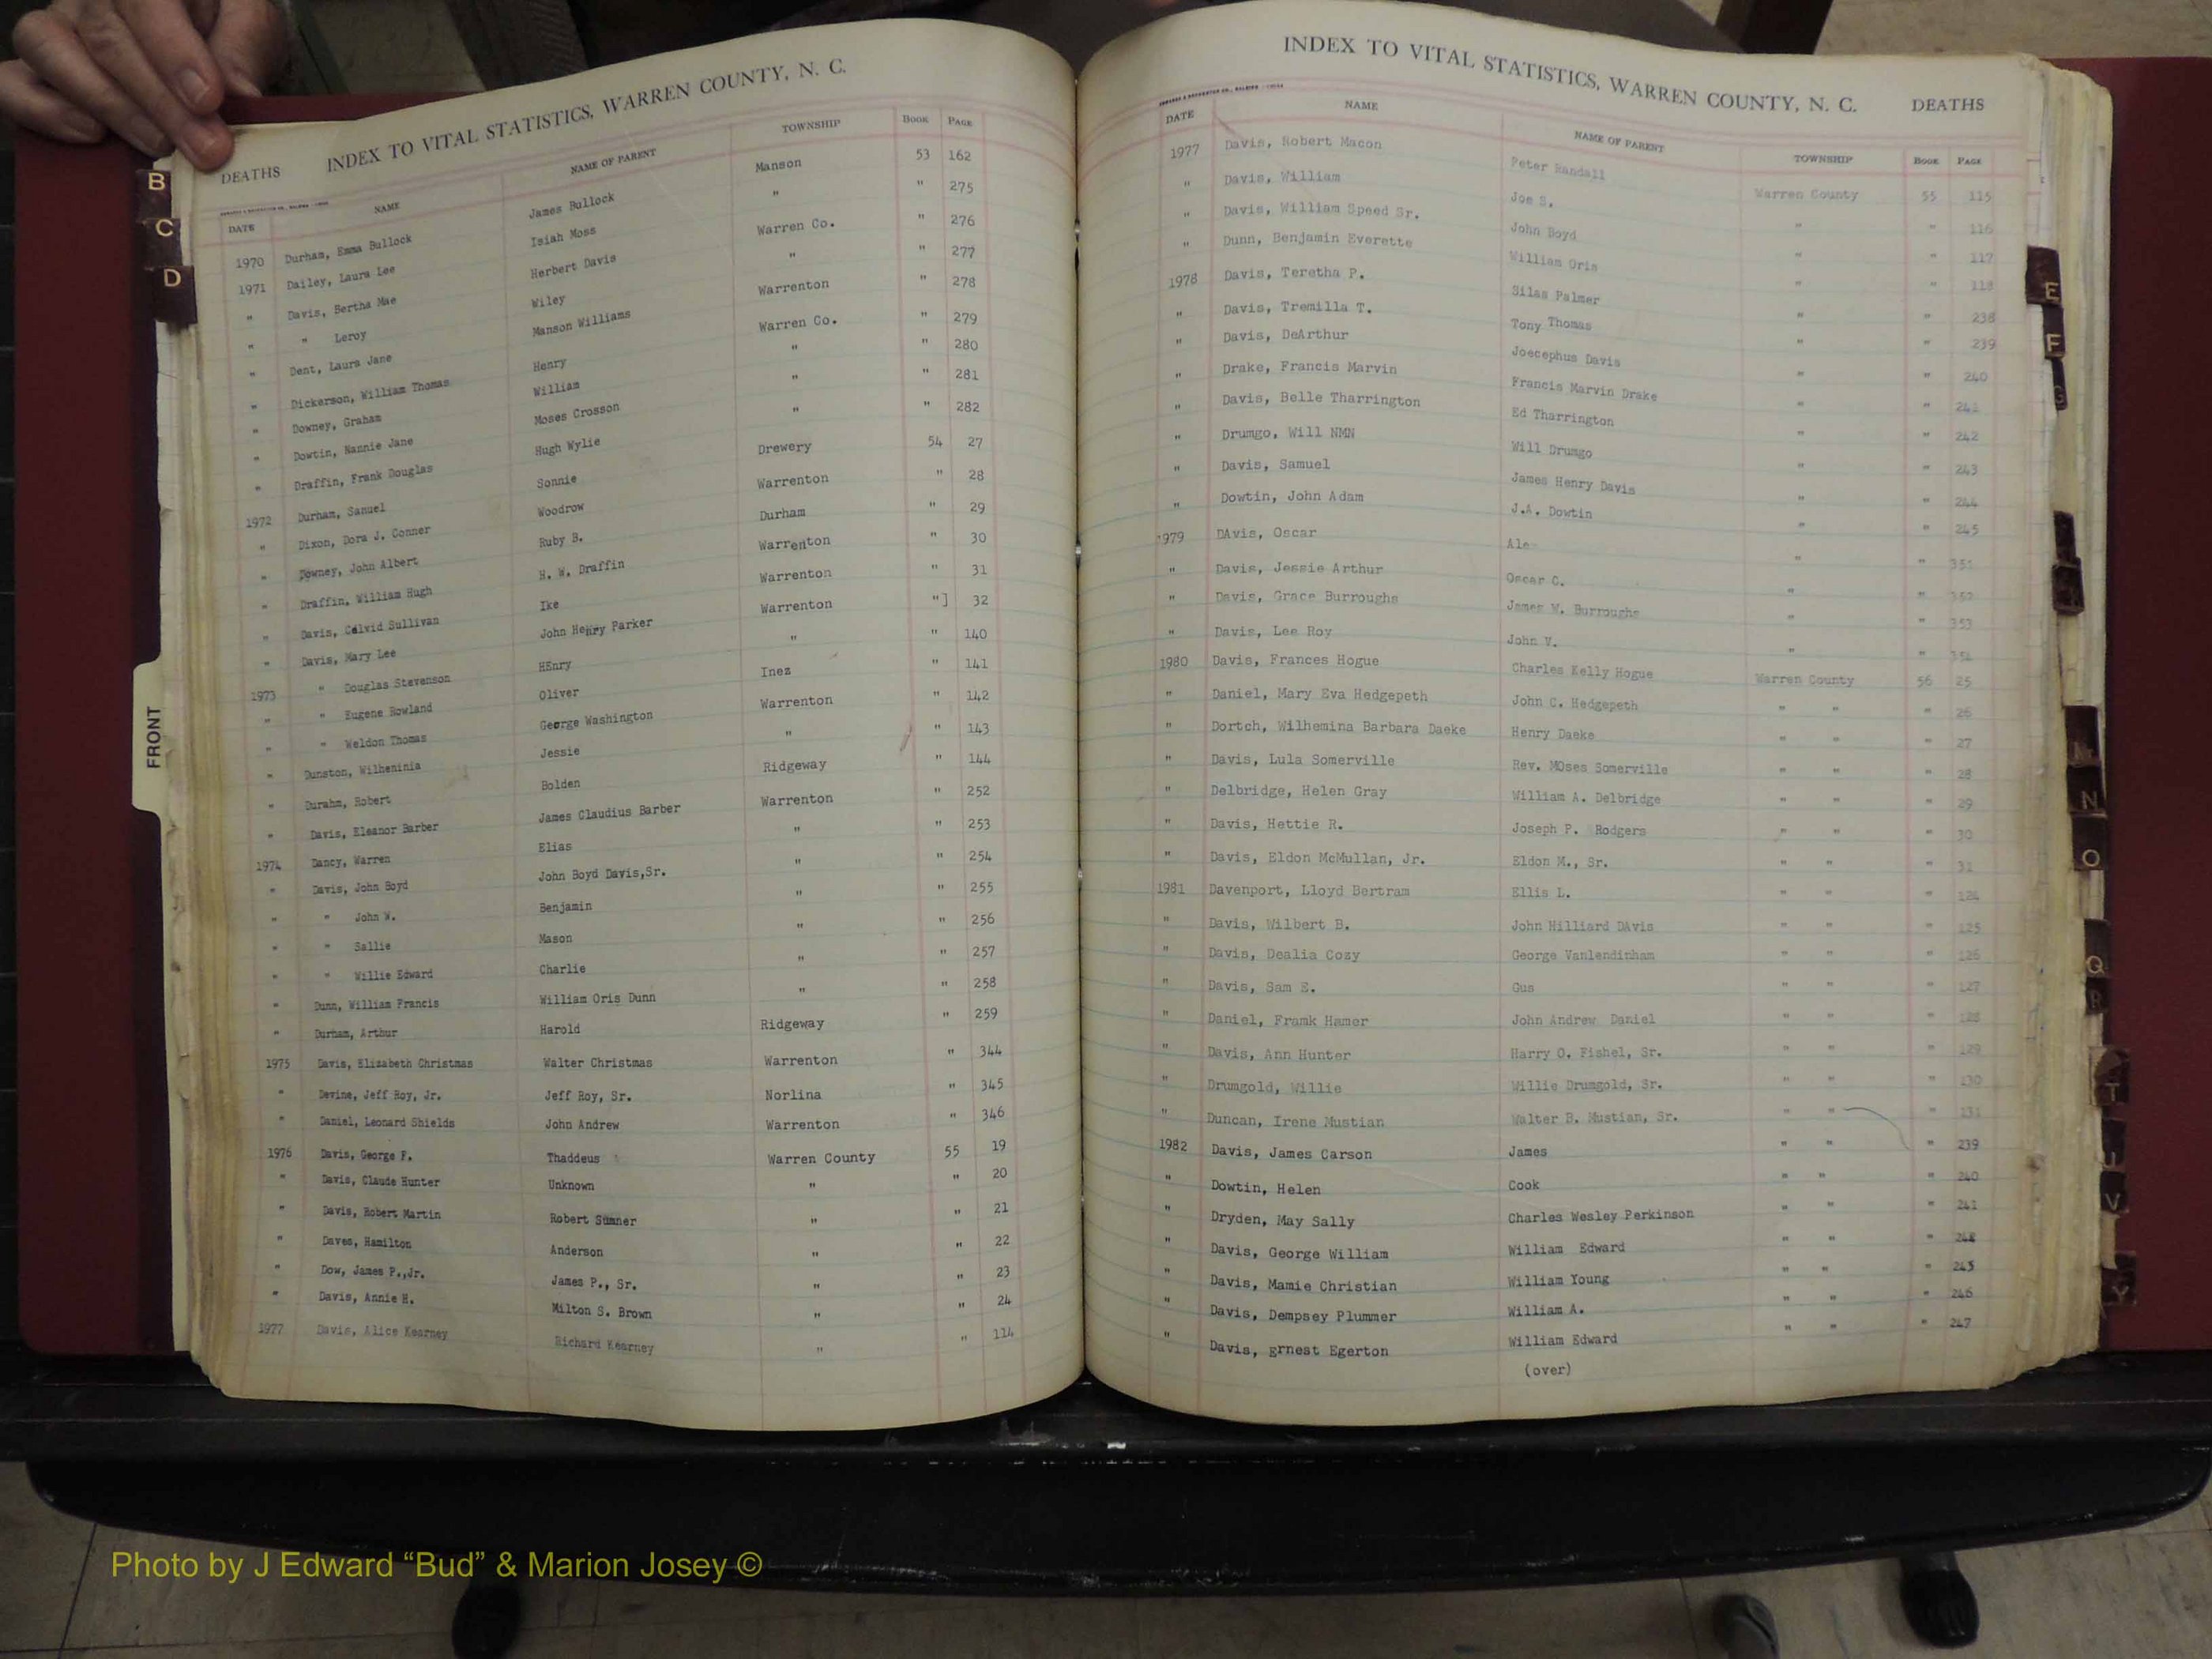 DEATHS INDEX TO VITAL STATISTICS, WARREN COUNTY, N. C.
DATE NAME NAME OF PARENT TOWNSHIP BOOK PAGE
1970 Durham, Emma Bullock James Bullock Manson 53 162
1971 Dailey, Laura Lee Isiah Moss " " 275
" Davis, Bertha Mae Herbert Davis Warren Co. " 276
" " Leroy Wiley " " 277
" Dent, Laura Jane Manson Williams Warrenton " 278
" Dickerson, William Thomas Henry Warren Co. " 279
" Downey, Graham William " " 280
" Dowtin, Nannie Jane Moses Crosson " " 281
" Draffin, Frank Douglas Hugh Wylie " " 282
1972 Durham, Sanuel Sonnie Drewery 54 27
" Dixon, Dora J. Conner Woodrow Warrenton " 28
" Downey, John Albert Ruby B. Durham " 29
" Draffin, William Hugh H. W. Draffin Warrenton " 30
" Davis, Calvid Sullivan Ike Warrenton " 31
" Davis, Mary Lee John Henry Parker Warrenton "] 32
1973 " Douglas Stevenson HEnry " " 140
" " Eugene Rowland Oliver Inez " 141
" " Weldon Thomas George Washington Warrenton " 142
" Dunston, Wilheninia Jessie " " 143
" Durahm, Robert Bolden Ridgeway " 144
" Davis, Eleanor Barber James Claudius Barber Warrenton " 252
1974 Dancy, Warren Elias " " 253
" Davis, John Boyd John Boyd Davis,Sr. " " 254
" " John W. Benjamin " " 255
" " Sallie Mason " " 256
" " Willie Edward Charlie " " 257
" Dunn, William Francis William Oris Dunn " " 258
" Durham, Arthur Harold Ridgeway " 259
1975 Davis, Elizabeth Christmas Walter Christmas Warrenton " 344
" Devine, Jeff Roy, Jr. Jeff Roy, Sr. Norlina " 345
" Daniel, Leonard Shields John Andrew Warrenton " 346
1976 Davis, George F. Thaddeus Warren County 55 19
" Davis, Claude Hunter Unknown " " 20
" Davis, Robert Martin Robert Sumner " " 21
" Daves, Hamilton Anderson " " 22
" Dow, James P.,Jr. James P., Sr. " " 23
" Davis, Annie H. Milton S. Brown " " 24
1977 Davis, Alice Kearney Richard Kearney " " 114
INDEX TO VITAL STATISTICS, WARREN COUNTY, N. C. DEATHS
DATE NAME NAME OF PARENT TOWNSHIP BOOK PAGE
1977 Davis, Robert Macon Peter Randall Warren County 55 115
" Davis, William Joe S. " " 116
" Davis, William Speed Sr. John Boyd " " 117
" Dunn, Benjamin Everette William Oris " " 118
1978 Davis, Teretha P. Silas Palmer " " 238
" Davis, Tremilla T. Tony Thomas " " 239
" Davis, DeArthur Joecephus Davis " " 240
" Drake, Francis Marvin Francis Marvin Drake " " 241
" Davis, Belle Tharrington Ed Tharrington " " 242
" Drumgo, Will NMN Will Drumgo " " 243
" Davis, Samuel James Henry Davis " " 244
" Dowtin, John Adam J.A. Dowtin " " 245
1979 DAvis, Oscar Ale " " 351
" Davis, Jessie Arthur Oscar C. " " 352
" Davis, Grace Burroughs James W. Burroughs " " 353
" Davis, Lee Roy John V. " " 354
1980 Davis, Frances Hogue Charles Kelly Hogue Warren County 56 25
" Daniel, Mary Eva Hedgepeth John C. Hedgepeth " " " 26
" Dortch, Wilhemina Barbara Daeke Henry Daeke " " " 27
" Davis, Lula Somerville Rev. MOses Somerville " " " 28
" Delbridge, Helen Gray William A. Delbridge " " " 29
" Davis, Hettie R. Joseph P. Rodgers " " " 30
" Davis, Eldon McMullan, Jr. Eldon M., Sr. " " " 31
1981 Davenport, Lloyd Bertram Ellis L. " " " 124
" Davis, Wilbert B. John Hilliard DAvis " " " 125
" Davis, Dealia Cozy George Vanlendinham " " " 126
" Davis, Sam E. Gus " " " 127
" Daniel, Framk Hamer John Andrew Daniel " " " 128
" Davis, Ann Hunter Harry O. Fishel, Sr. " " " 129
" Drumgold, Willie Willie Drumgold, Sr. " " " 130
" Duncan, Irene Mustian Walter B. Mustian, Sr. " " " 131
1982 Davis, James Carson James " " " 239
" Dowtin, Helen Cook " " " 240
" Dryden, May Sally Charles Wesley Perkinson " " " 241
" Davis, George William William Edward " " "
" Davis, Mamie Christian William Young " " " 245
" Davis, Dempsey Plummer William A. " " " 246
" Davis, Ernest Egerton William Edward " " " 247
(over)
B
C
D
FRONT
E
F
G
N
O
Q
R
T
U
V
Y
Photo by J Edward “Bud” & Marion Josey ©